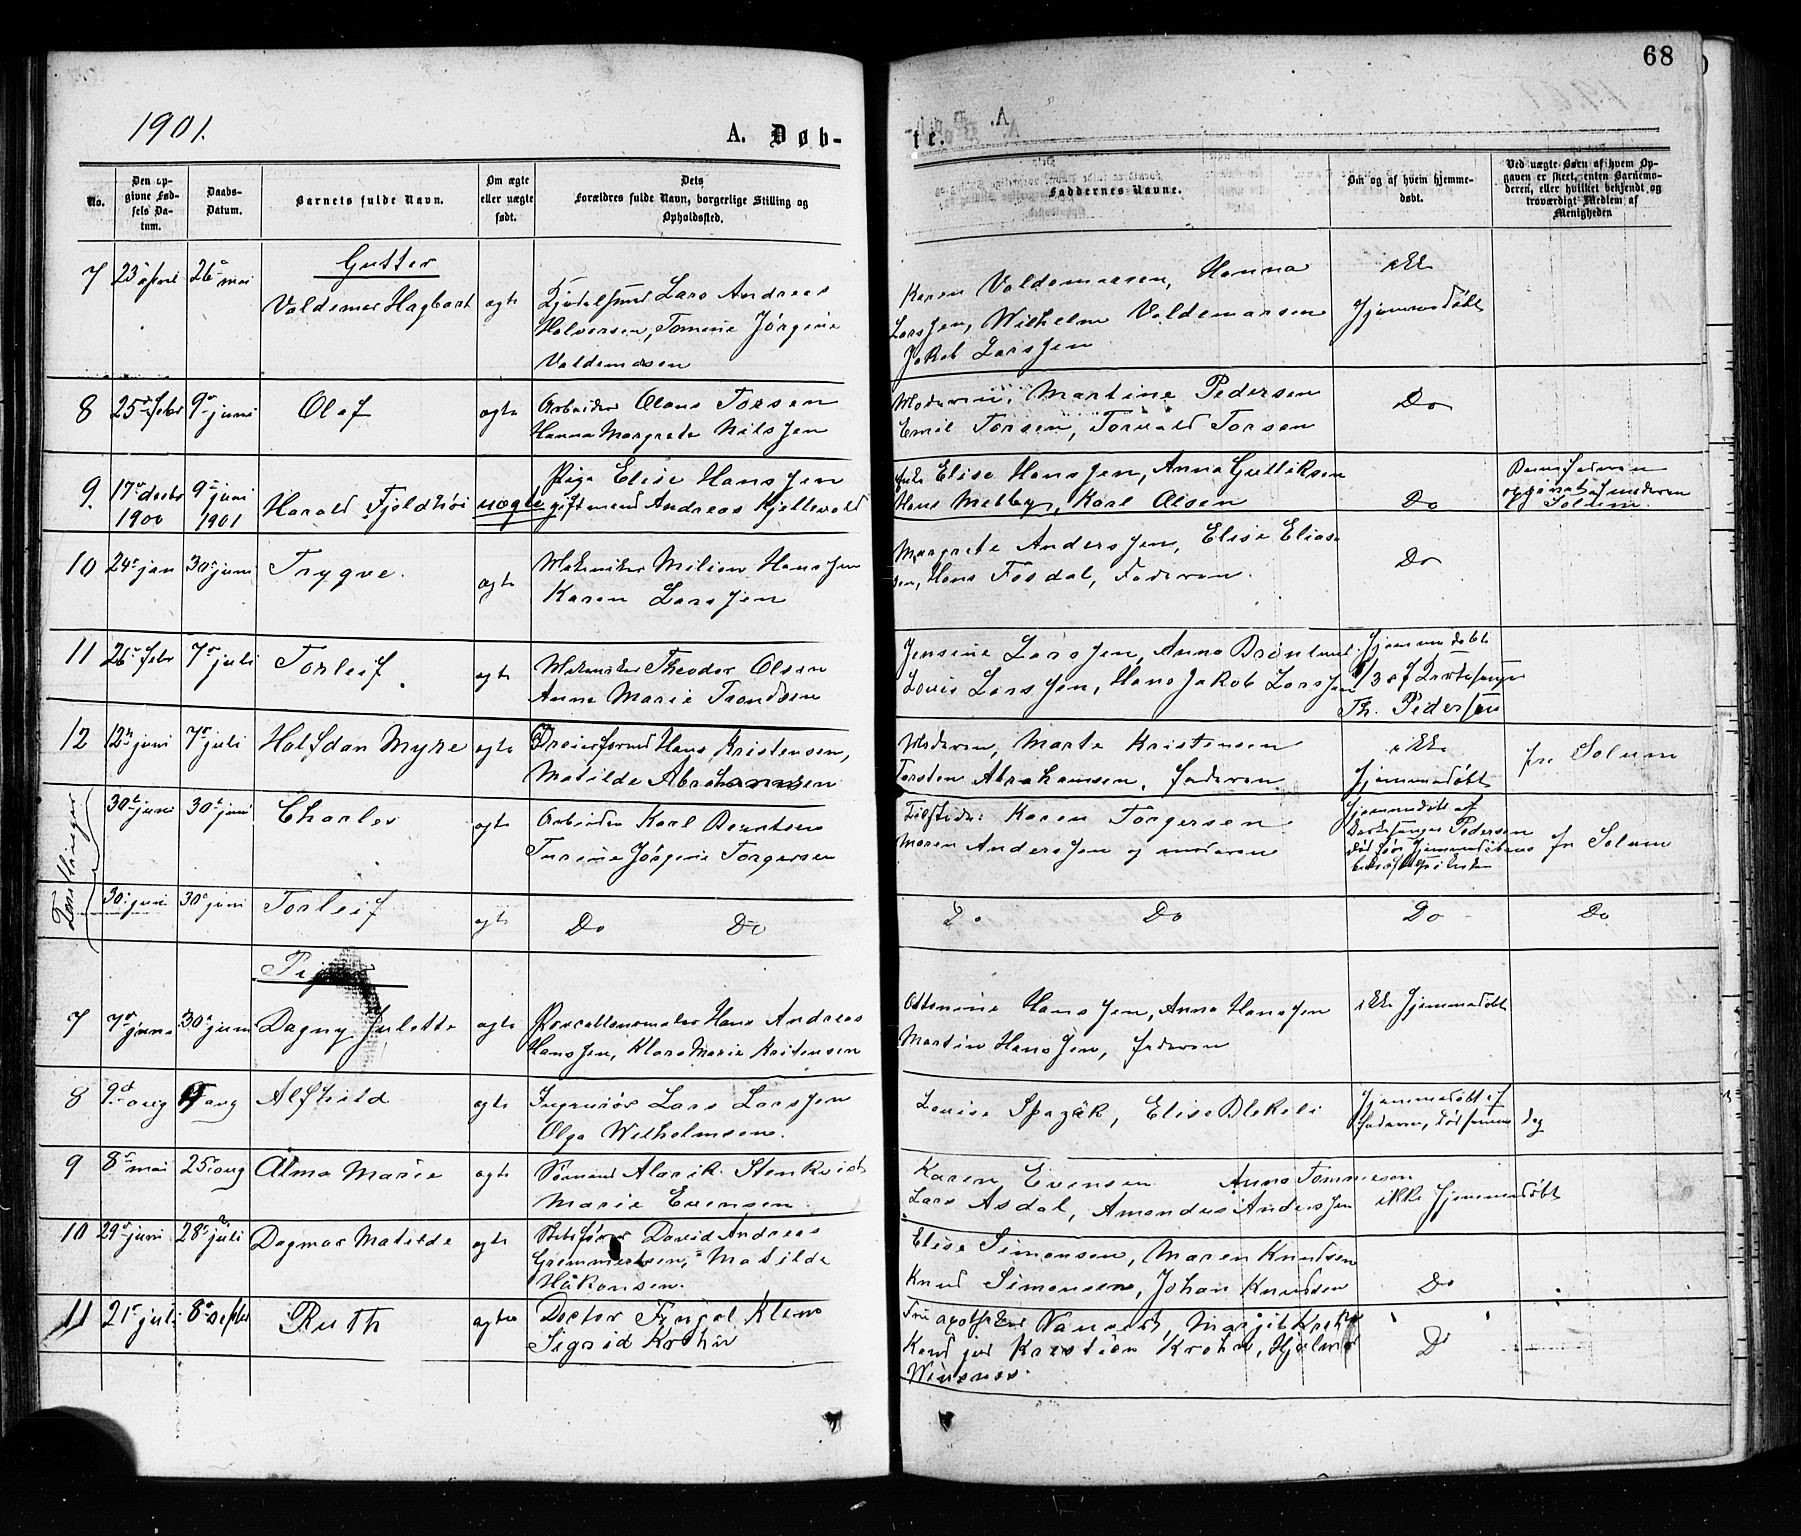 68
1901.
A. Døb-
te.
No.
Den op-
givne Fød-
sels Da-
tum.
Daabs-
Datum.
Barnets fulde Navn.
Om ægte
eller uægte
født.
Dets
Forældres fulde Navn, borgerlige Stilling og
Opholdssted.
Faddernes Navne.
Om og af hvem hjemme-
døbt.
Ved uægte Børn af hvem Op-
gaven er skeet, enten Barnemo-
deren, eller hvilket bekjendt og
troværdigt Medlem af
Menigheden
Gutter
7 23 april 26 mai Valdemar Hagbart ægte Lars Andreas
Halvorsen, Tomine Jørgine
Valdemarsen
Karen Valdemarsen, Hanna
Larssen, Wilhelm Valdemarsen
Jakob Larssen
ikke
hjemmedøbt
8 25 febr 9 juni Olaf ægte Arbeider Olaus Torsen
Hanna Margrete Nilssen
Moderen, Martine Pedersen
Emil Torsen, Torvald Torsen
Do
9. 17 decbr 1900 9 juni 1901 Harald Fjeldhøi uægte Pige Elise Hanssen
gift mand Andreas Kjellevold
Elise Hanssen, Anna Gulliksen
Hans Melby, Karl Olsen
Do
Barnefaderen
opgivet af moderen
Solum.
10 24 jan 30 juni Trygve. ægte Mekaniker Milian Hanssen
Karen Larssen
Margrete Anderssen, Elise Elias-
sen, Hans Fosdal, Faderen.
Do
11 26 febr 7 juli Torleif ægte Mekaniker Theodor Olsen
Anne Marie Trondsen
Jensine Larssen, Anna Brønlund
Louis Larssen, Hans Jakob Larssen
Hjemmedøbt
/3 af Kirkesanger
Th. Pedersen
12 12 juni 7 juli Halfdan Myre ægte Dreierformd Hans Kristensen,
Matilde Abrahamsen
Moderen, Marte Kristensen
Torsten Abrahamsen, faderen
ikke
hjemmedøbt
fra Solum
Tvillinger
30 juni 30 juni Charles ægte Arbeider Karl Berntsen
Turine Jørgine Torgersen
Karen Torgersen
Maren Anderssen og moderen
Hjemmedøbt af
Kirkesanger Pedersen
død før hjemmedøbens
fr Solum
30 juni 30 juni Torleif ægte Do Do
Do Do Do Do
Piger
7 7 juni 30 juni Dagny Julette ægte Porcellænsmaler Hans Andreas
Hanssen, Klara Marie Kristensen
Ottomine Hanssen, Anna Hanssen
Martin Hanssen, faderen
ikke hjemmedøbt
8 9 aug 9 aug Alfhild ægte Ingeniør Lars Larssen
Olga Wilhelmsen.
Louise Spazük, Elise Blekeli
Hjemmedøbt af
faderen, død samme dag
9 8 mai 25 aug Alma Marie ægte Sømand Alarik Stenkvist
Marie Evensen.
Karen Evensen Anna Tommesen
Lars Asdal, Amandus Anderssen
ikke hjemmedøbt
10 29 juni 28 juli Dagmar Matilde ægte David Andreas
Grimmertsen, Matilde
Håkonsen.
Elise Simonsen, Maren Knudsen
Knud Simonsen, Johan Knudsen
Do
11 21 juli 8 septbr Ruth ægte Doctor Fingal Klem
Sigrid Krohn
Fru apotheker Margit Krohn
Kand jur Kristian Krohn, Hjalmar
Winsnes.
Do